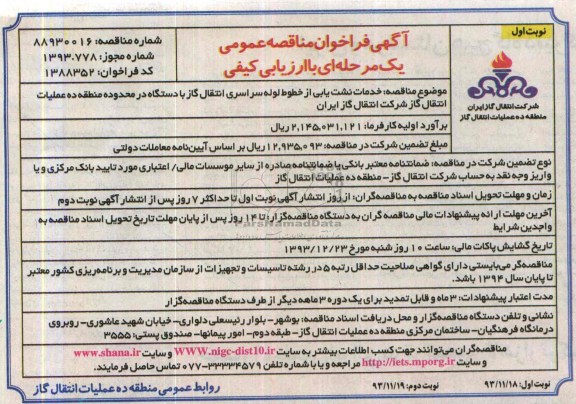 نوبت اول
شرکت انتقال گاز ایران
منطقه ده عملیات انتقال گاز
آگهی فراخوان مناقصه عمومی
یک مرحله‌ای با ارزیابی کیفی
شماره مناقصه: ۸۸۹۳۰۰۱۶
شماره مجوز: ۱۳۹۳.۷۷۸
کد فراخوان: ۱۳۸۸۳۵۲
موضوع مناقصه: خدمات نشت یابی از خطوط لوله سراسری انتقال گاز با دستگاه در محدوده منطقه ده عملیات
انتقال گاز شرکت انتقال گاز ایران
برآورد اولیه کارفرما: ۲,۱۴۵,۰۳۱,۱۲۱ ریال
مبلغ تضمین شرکت در مناقصه: ۱۲,۹۳۵,۰۹۳ ریال بر اساس آیین‌نامه معاملات دولتی
نوع تضمین شرکت در مناقصه: ضمانتنامه معتبر بانکی یا ضمانتنامه صادره از سایر موسسات مالی/ اعتباری مورد تایید بانک مرکزی و یا
واریز وجه نقد به حساب شرکت انتقال گاز - منطقه ده عملیات انتقال گاز
زمان و مهلت تحویل اسناد مناقصه به مناقصه‌گران: از روز انتشار آگهی نوبت اول تا حداکثر ۷ روز پس از انتشار آگهی نوبت دوم
آخرین مهلت ارائه پیشنهادات مالی مناقصه گران به دستگاه مناقصه‌گزار: تا ۱۴ روز پس از پایان مهلت تاریخ تحویل اسناد مناقصه به
واجدین شرایط
تاریخ گشایش پاکات مالی: ساعت ۱۰ روز شنبه مورخ ۱۳۹۳/۱۲/۲۳
مناقصه‌گر می‌بایستی دارای گواهی صلاحیت حداقل رتبه ۵ در رشته تاسیسات و تجهیزات از سازمان مدیریت و برنامه‌ریزی کشور معتبر
تا پایان سال ۱۳۹۴ باشد.
مدت اعتبار پیشنهادات: ۳ ماه و قابل تمدید برای یک دوره ۳ ماهه دیگر از طرف دستگاه مناقصه‌گزار
نشانی و تلفن دستگاه مناقصه‌گزار و محل دریافت اسناد مناقصه: بوشهر- بلوار رئیسعلی دلواری- خیابان شهید عاشوری- روبروی
درمانگاه فرهنگیان- ساختمان مرکزی منطقه ده عملیات انتقال گاز- طبقه دوم- امور پیمانها- صندوق پستی: ۳۵۵۵
مناقصه‌گران می‌توانند جهت کسب اطلاعات بیشتر به سایت www.NIGC-dist10.ir و سایت www.shana.ir
و سایت http://iets.mporg.ir مراجعه و یا با شماره تلفن ۳۳۳۳۴۵۷۹-۰۷۷ تماس حاصل فرمایند.
نوبت اول: ۹۳/۱۱/۱۸ نوبت دوم: ۹۳/۱۱/۱۹
روابط عمومی منطقه ده عملیات انتقال گاز
ParsNamadData